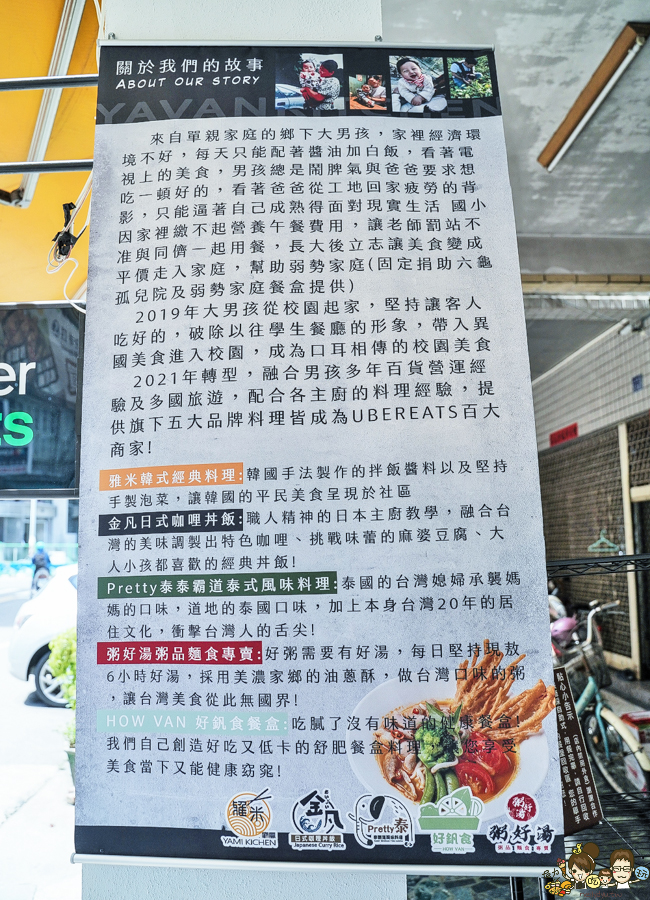 關於我們的故事
ABOUT OUR STORY
來自單親家庭的鄉下大男孩，家裡經濟環
境不好，每天只能配著醬油加白飯，看著電
視上的美食，男孩總是鬧脾氣與爸爸要求想
吃一頓好的，看著爸爸從工地回家疲勞的背
影，只能逼著自己成熟得面對現實生活 國小
因家裡繳不起營養午餐費用，讓老師罰站不
准與同儕一起用餐，長大後立志讓美食變成
平價走入家庭，幫助弱勢家庭(固定捐助六龜
孤兒院及弱勢家庭餐盒提供)
2019年大男孩從校園起家，堅持讓客人
吃好的，破除以往學生餐廳的形象，帶入異
國美食進入校園，成為口耳相傳的校園美食
2021年轉型，融合男孩多年百貨營運經
驗及多國旅遊，配合各主廚的料理經驗，提
供旗下五大品牌料理皆成為UBEREATS百大
商家!
雅米韓式經典料理:韓國手法製作的拌飯醬料以及堅持
手製泡菜，讓韓國的平民美食呈現於社區
金凡日式咖哩丼飯:職人精神的日本主廚教學，融合台
灣的美味調製出特色咖哩、挑戰味蕾的麻婆豆腐、大
人小孩都喜歡的經典丼飯!
Pretty泰泰霸道泰式風味料理:泰國的台灣媳婦承襲媽
媽的口味，道地的泰國口味，加上本身台灣20年的居
住文化，衝擊台灣人的舌尖!
粥好湯粥品麵食專賣:好粥需要有好湯，每日堅持現熬
6小時好湯，採用美濃家鄉的油蔥酥，做台灣口味的粥
，讓台灣美食從此無國界!
HOW VAN 好釩食餐盒:吃膩了沒有味道的健康餐盒!
我們自己創造好吃又低卡的舒肥餐盒料理，讓您享受
美食當下又能健康窈窕!
雅米
YAMI KICHEN
金凡
日式咖哩丼飯
Japanese Curry Rice
Pretty泰
好釩食
HOW VAN
粥好湯
粥好湯
粥品麵食專賣
er
ts
貼心小告示